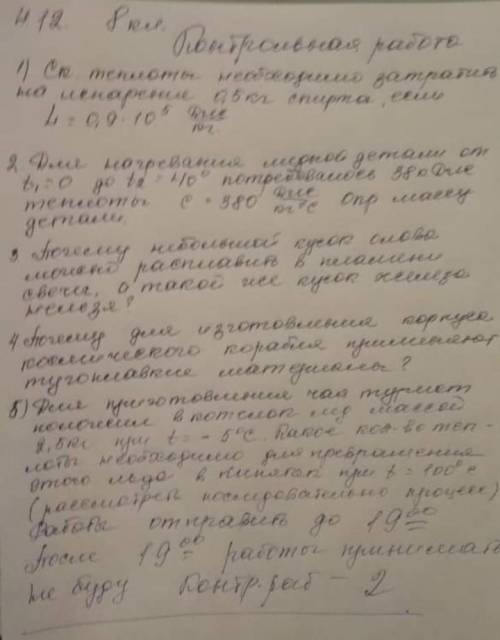 4 12. 8 кл.
Контрольная работа
1) Ск. теплоты необходимо затратить
на испарение 0,5 кг спирта, если
L = 0,9 · 10⁵ Дж/кг
2. Для нагревания медной детали от
t₁ = 0 до t₂ = 40° потребовалось 380 Дж
теплоты c = 380 Дж/кг°C Опр массу
детали.
3 Почему небольшой кусок олова
можно расплавить в пламени
свечи, а такой же кусок железа
нельзя?
4 Почему для изготовления корпуса
космического корабля применяют
тугоплавкие материалы?
5) Для приготовления чая турист
положил в котелок лёд массой
2,5кг при t = -5°C. Какое кол-во теп-
лоты необходимо для превращения
этого льда в кипяток при t = 100°C
(рассмотреть последовательно процессе)
Работы отправить до 19⁰⁰
После 19⁰⁰ работы принимать
не буду Контр. раб - 2